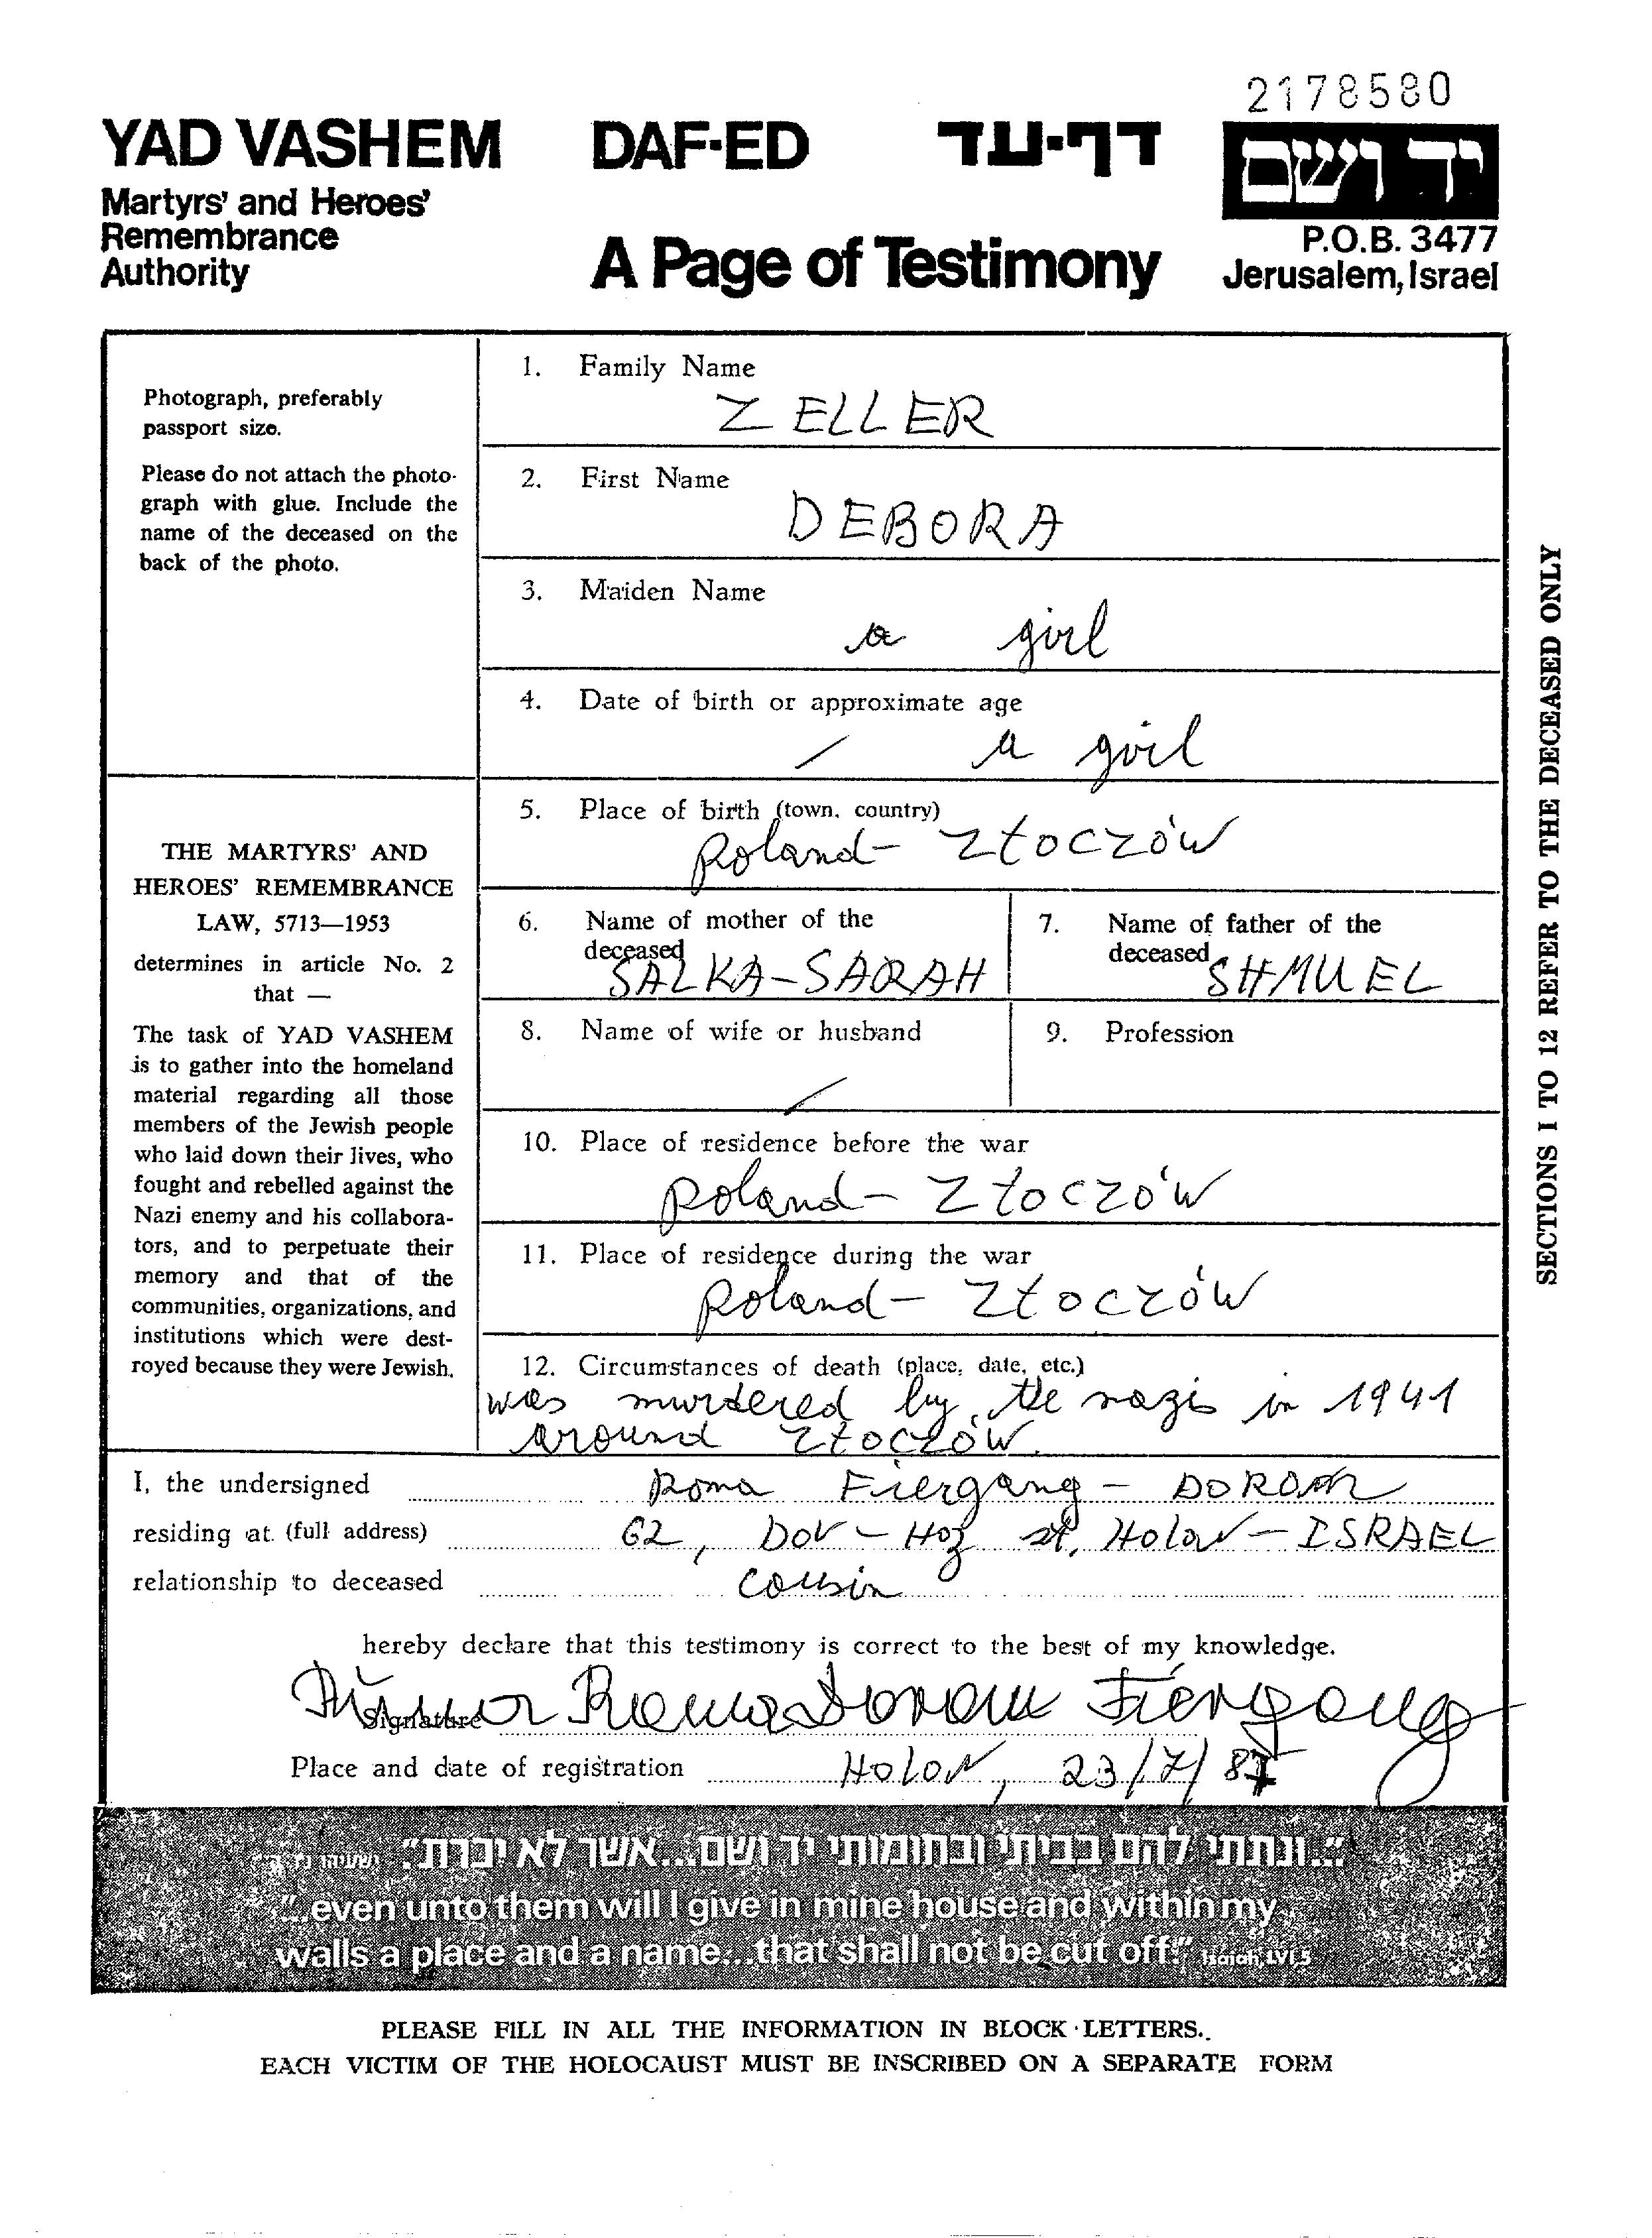 2178580
YAD VASHEM DAF-ED דף-עד יד ושם
Martyrs' and Heroes'
Remembrance
Authority
A Page of Testimony
P.O.B. 3477
Jerusalem, Israel
Photograph, preferably
passport size.
Please do not attach the photo-
graph with glue. Include the
name of the deceased on the
back of the photo.
THE MARTYRS' AND
HEROES' REMEMBRANCE
LAW, 5713—1953
determines in article No. 2
that —
The task of YAD VASHEM
is to gather into the homeland
material regarding all those
members of the Jewish people
who laid down their lives, who
fought and rebelled against the
Nazi enemy and his collabora-
tors, and to perpetuate their
memory and that of the
communities, organizations, and
institutions which were dest-
royed because they were Jewish.
1. Family Name
ZELLER
2. First Name
DEBORA
3. Maiden Name
a girl
4. Date of birth or approximate age
/ a girl
5. Place of birth (town, country)
Poland - Złoczów
6. Name of mother of the
deceased
SALKA-SARAH
7. Name of father of the
deceased
SHMUEL
8. Name of wife or husband
/
9. Profession
10. Place of residence before the war
Poland - Złoczów
11. Place of residence during the war
Poland - Złoczów
12. Circumstances of death (place, date, etc.)
was murdered by the nazis in 1941
around Złoczów.
SECTIONS 1 TO 12 REFER TO THE DECEASED ONLY
I, the undersigned Roma Fiergang - DORAM
residing at (full address) 62, Dov - Hoz st, Holon - ISRAEL
relationship to deceased cousin
hereby declare that this testimony is correct to the best of my knowledge.
Signature Roma Doram Fiergang
Place and date of registration HOLON, 23/7/87
"...ונתתי להם בביתי ובחומותי יד ושם...אשר לא יכרת." ישעיהו נ"ו ה'
"...even unto them will I give in mine house and within my
walls a place and a name...that shall not be cut off." Isaiah, LVI, 5
PLEASE FILL IN ALL THE INFORMATION IN BLOCK LETTERS.
EACH VICTIM OF THE HOLOCAUST MUST BE INSCRIBED ON A SEPARATE FORM